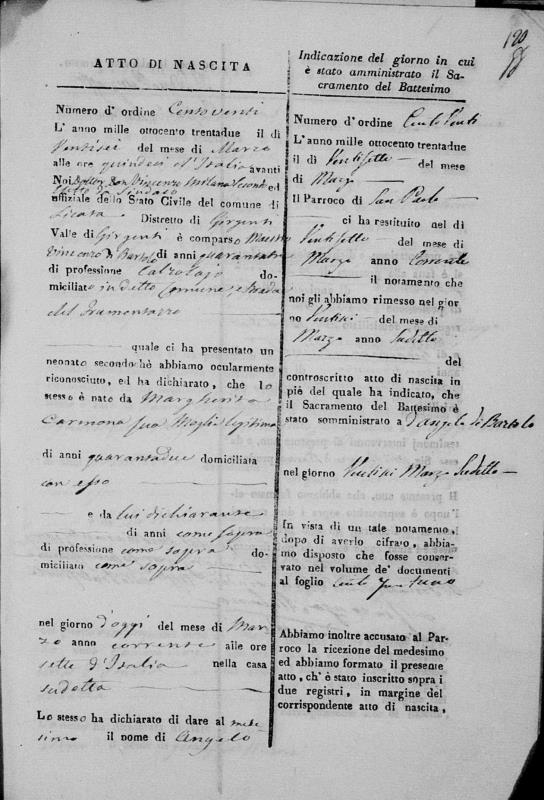 120
ATTO DI NASCITA
Numero d' ordine Centoventi
L' anno mille ottocento trentadue il dì
Ventisei del mese di Marzo
alle ore quindeci d'Italia avanti
Noi Dottor Don Vincenzo ed
uffiziale dello Stato Civile del comune di
Licata Distretto di Girgenti
Valle di Girgenti è comparso Maestro
Vincenzo di Bartolo di anni quarantatre
di professione Calzolajo do-
miciliato in detto Comune, Strada
del
quale ci ha presentato un
neonato secondochè abbiamo ocularmente
riconosciuto, ed ha dichiarato, che lo
stesso è nato da Margherita
Carmona sua Moglie legitima
di anni quarantadue domiciliata
con esso
e da lui dichiarante
di anni come sopra
di professione come sopra do-
miciliato come sopra
nel giorno d'oggi del mese di Mar-
zo anno corrente alle ore
sette d'Italia nella casa
sudetta
Lo stesso ha dichiarato di dare al mede-
simo il nome di Angelo
Indicazione del giorno in cui
è stato amministrato il Sa-
cramento del Battesimo
Numero d'ordine Cento Venti
L'anno mille ottocento trentadue
il dì Ventisette del mese
di Marzo
Il Parroco di San Paolo
ci ha restituito nel dì
Ventisette del mese di
Marzo anno Corrente
il notamento che
noi gli abbiamo rimesso nel gior
no Ventisei del mese di
Marzo anno Sudetto
del
controscritto atto di nascita in
piè del quale ha indicato, che
il Sacramento del Battesimo è
stato somministrato a d'Angelo di Bartolo
nel giorno Ventisei Marzo Sudetto
In vista di un tale notamento,
dopo di averlo cifrato, abbia-
mo disposto che fosse conser-
vato nel volume de' documenti
al foglio cento
Abbiamo inoltre accusato al Par-
roco la ricezione del medesimo
ed abbiamo formato il presente
atto, ch' è stato inscritto sopra i
due registri, in margine del
corrispondente atto di nascita,